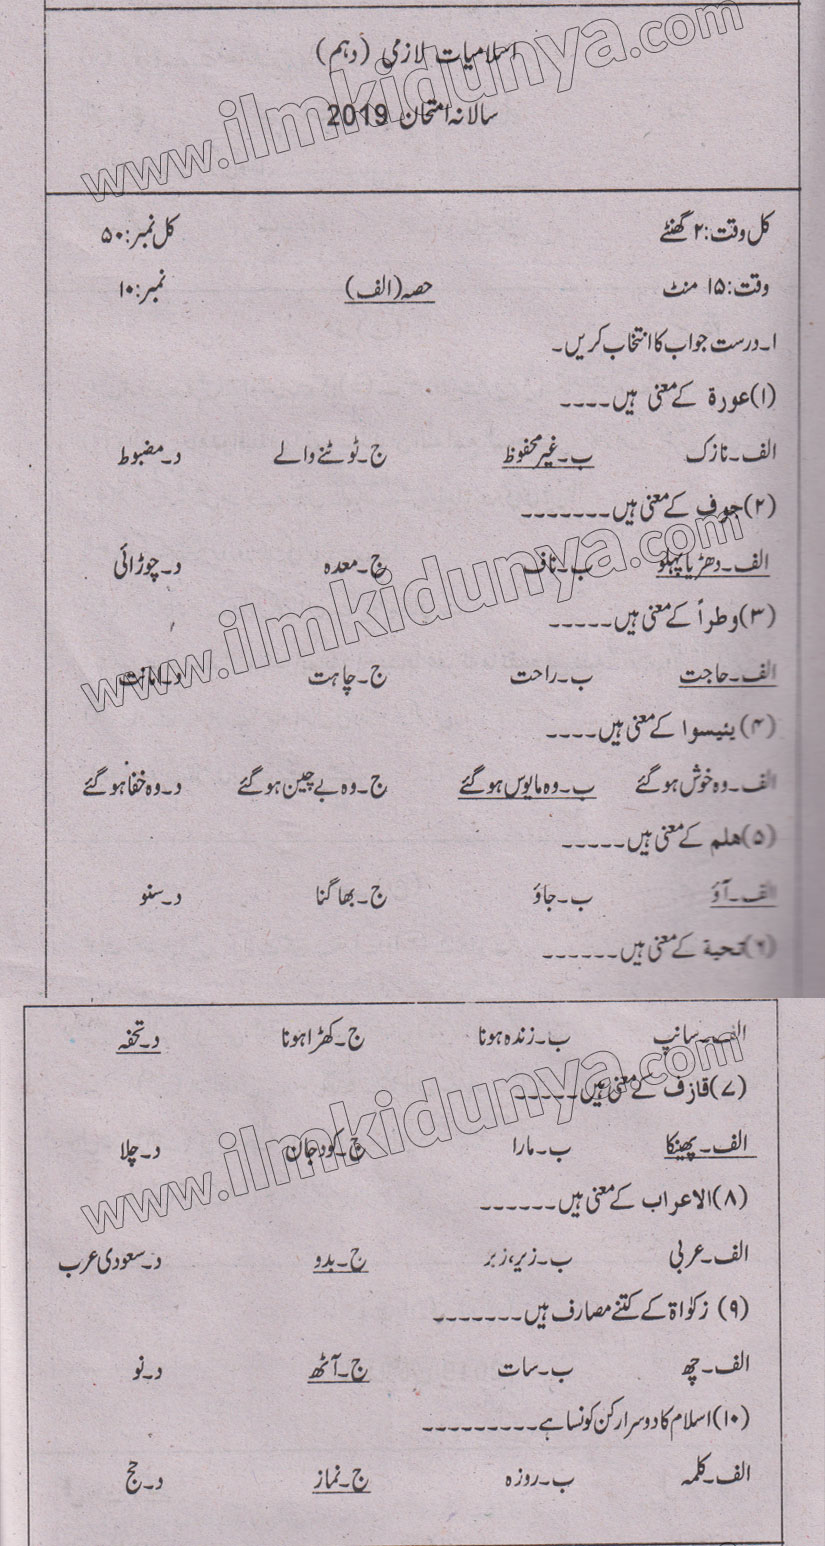 اسلامیات لازمی (دہم)
سالانہ امتحان 2019
کل وقت: ۲ گھنٹے کل نمبر: ۵۰
وقت: ۱۵ منٹ حصہ (الف) نمبر: ۱۰
۱۔ درست جواب کا انتخاب کریں۔
(۱) عورة کے معنی ہیں ۔۔۔۔
الف۔ نازک ب۔ غیر محفوظ ج۔ ٹوٹنے والے د۔ مضبوط
(۲) جوف کے معنی ہیں ۔۔۔۔۔۔۔
الف۔ دھڑ یا پہلو ب۔ ناف ج۔ معدہ د۔ چوڑائی
(۳) وطراً کے معنی ہیں ۔۔۔۔۔
الف۔ حاجت ب۔ راحت ج۔ چاہت د۔ امانت
(۴) ینیسوا کے معنی ہیں ۔۔۔۔
الف۔ وہ خوش ہو گئے ب۔ وہ مایوس ہو گئے ج۔ وہ بے چین ہو گئے د۔ وہ خفا ہو گئے
(۵) هلم کے معنی ہیں ۔۔۔۔۔
الف۔ آؤ ب۔ جاؤ ج۔ بھاگنا د۔ سنو
(۶) تحیة کے معنی ہیں ۔۔۔۔۔۔
الف۔ سانپ ب۔ زندہ ہونا ج۔ کھڑا ہونا د۔ تحفہ
(۷) قازف کے معنی ہیں ۔۔۔۔۔
الف۔ پھینکا ب۔ مارا ج۔ کود جان د۔ چلا
(۸) الاعراب کے معنی ہیں ۔۔۔۔۔۔
الف۔ عربی ب۔ زیر، زبر ج۔ بدو د۔ سعودی عرب
(۹) زکوٰۃ کے کتنے مصارف ہیں ۔۔۔۔۔۔۔
الف۔ چھ ب۔ سات ج۔ آٹھ د۔ نو
(۱۰) اسلام کا دوسرا رکن کونسا ہے ۔۔۔۔۔۔۔۔۔
الف۔ کلمہ ب۔ روزہ ج۔ نماز د۔ حج
www.ilmkidunya.com
www.ilmkidunya.com
www.ilmkidunya.com